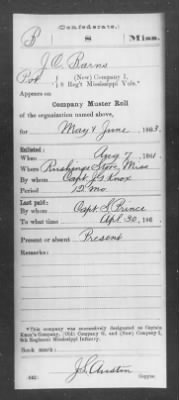 Confederate.
B S Miss.
J. C. Barns
Pvt (New) Company I,
8 Reg't Mississippi Vols.*
Appears on
Company Muster Roll
of the organization named above,
for May & June, 1863.
Enlisted:
When Aug 7, 1861.
Where Rushings Store, Miss
By whom Capt. J. G. Knox
Period 12 mo
Last paid:
By whom Capt. S. Prince
To what time Apl. 30, 186
Present or absent Present
Remarks:
*This company was successively designated as Captain
Knox's Company, (Old) Company G, and (New) Company I,
8th Regiment Mississippi Infantry.
Book mark:
J. S. Austin
(642) Copyist.